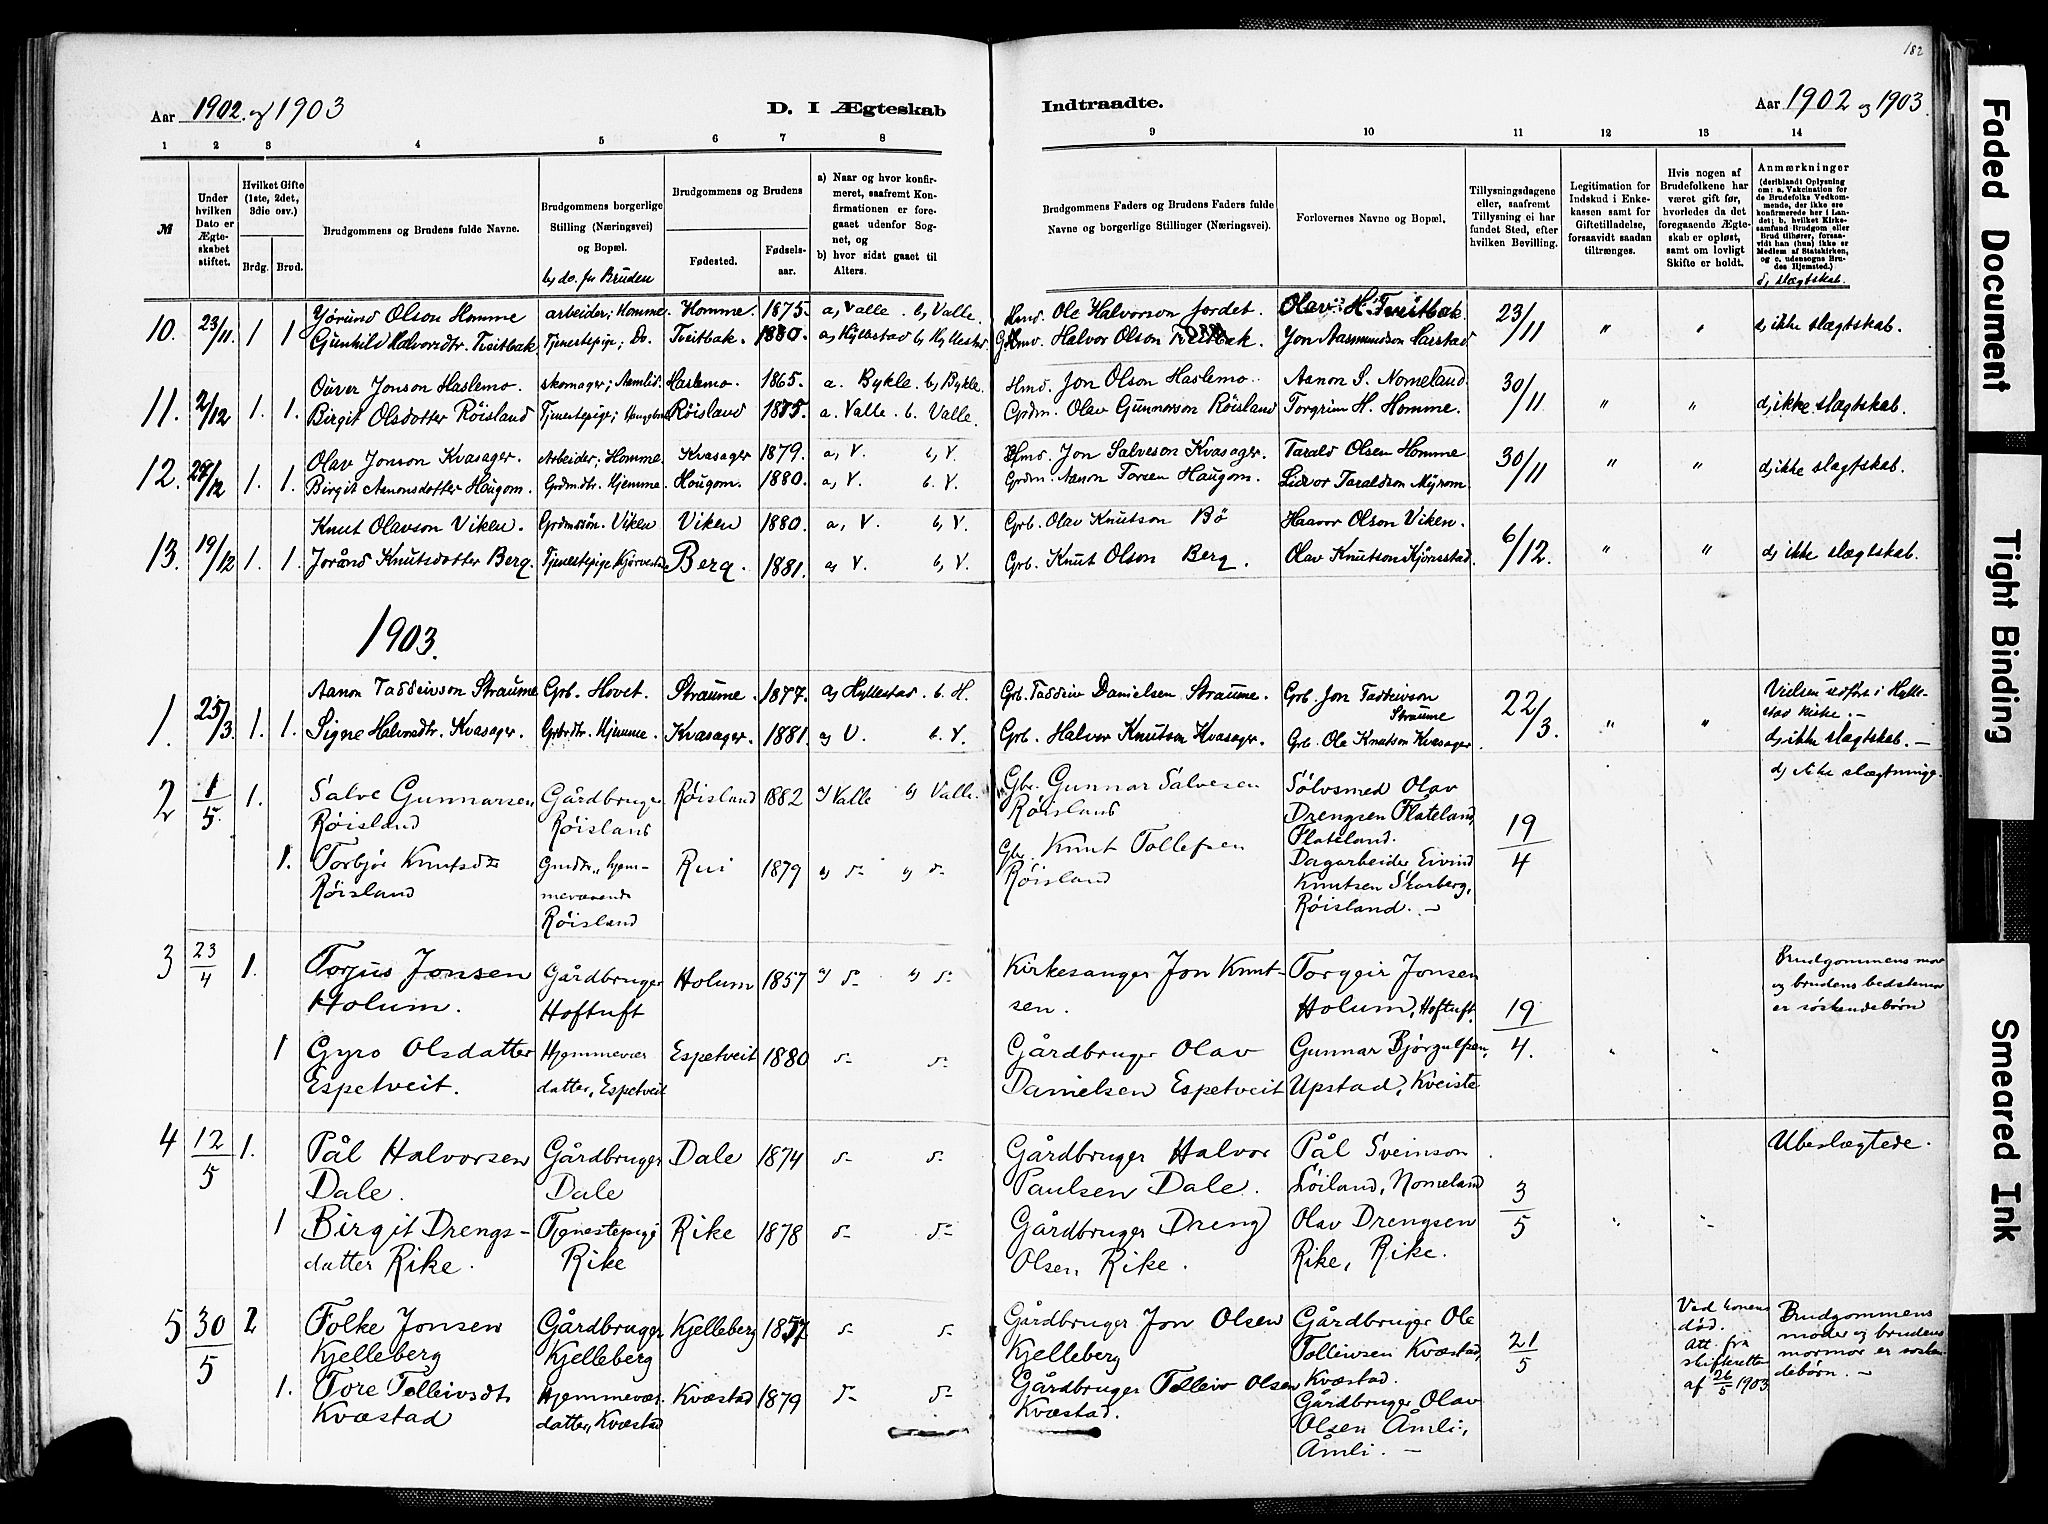 182
Aar 1902 og 1903
D. I Ægteskab
Indtraadte.
Aar 1902 og 1903.
1 2 3 4 5 6 7 8 9 10 11 12 13 14
№
Under hvilken Dato er Ægteskabet stiftet.
Hvilket Gifte (1ste, 2det, 3die osv.)
Brdg. Brud.
Brudgommens og Brudens fulde Navne.
Brudgommens borgerlige Stilling (Næringsvei) og Bopæl.
b, do. for Bruden
Brudgommens og Brudens
Fødested.
Fødselsaar.
a) Naar og hvor konfirmeret, saafremt Konfirmationen er foregaaet udenfor Sognet, og
b) hvor sidst gaaet til Alters.
Brudgommens Faders og Brudens Faders fulde Navne og borgerlige Stillinger (Næringsvei).
Forlovernes Navne og Bopæl.
Tillysningsdagene eller, saafremt Tillysning ei har fundet Sted, efter hvilken Bevilling.
Legitimation for Indskud i Enkekassen samt for Giftetilladelse, forsaavidt saadan tiltrænges.
Hvis nogen af Brudefolkene har været gift før, hvorledes da det foregaaende Ægteskab er opløst, samt om lovligt Skifte er holdt.
Anmærkninger
(deriblandt Oplysning om: a. Vakcination for de Brudefolks Vedkommende, der ikke ere konfirmerede her i Landet; b. hvilket Kirkesamfund Brudgom eller Brud tilhører, forsaavidt han (hun) ikke er Medlem af Statskirken, og c. udensogns Brudes Hjemsted.)
d, slægtskab.
10. 23/11 1 1 Jørund Olson Homme arbeider; Homme. Homme. 1875. a, Valle. b, Valle. Hmd. Ole Halvorson Jordet. Olav H. Tveitbak. 23/11 " " d, ikke slægtskab.
Gunhild Halvorsdtr. Tveitbak. Tjenestepige; Do. Tveitbak. 1880. a, Hyllestad b, Hyllestad Halvor Olson Jon Aasmundson Harstad
11. 2/12 1. 1. Jonson Haslemo. skomager; Aamlid. Haslemo. 1865. a. Bykle. b, Bykle. Hmd. Jon Olson Haslemo. Aanon S. Nomeland. 30/11 " " d, ikke slægtskab.
Birgit Olsdotter Röisland Tjenestepige; Röisland 1875. a. Valle. b. Valle. Grdm. Olav Gunnarson Röisland Torgrim H. Homme.
12. 27/12 1. 1. Olav Jonson Kvasager. Arbeider; Homme. Kvasager 1879. a, V. b, V. Hmd. Jon Salveson Kvasager. Tarald Olsen Homme 30/11 " " d, ikke slægtskab.
Birgit Aanonsdotter Haugom. Grdmdtr. Hjemme. Haugom. 1880. a, V. b. V. Grdm. Aanon Torsen Haugom. Lidvor Taraldson Myrom.
13. 19/12 1. 1. Knut Olavson Viken. Grdmssön. Viken Viken 1880. a, V. b, V. Grb. Olav Knutson Bø Haavor Olson Viken. 6/12. " " d, ikke slægtskab.
Jorånd Knutsdotter Berg. Tjenestepige Berg. 1881. a, V. b, V. Grb. Knut Olson Berg. Olav Knutson
1903.
1. 25/3 1. 1. Aanon Taddeivson Straume Grb. Hovet. Straume. 1877. a, Hyllestad b. H. Grb. Taddeiv Danielsen Straume. Grb. Jon Taddeivson Straume 22/3. " " Vielsen udført i Hyllestad kirke. –
Signe Halvorsdtr. Kvasager. Grbrdtr. Hjemme. Kvasager. 1881. a, V. b. V. Grb. Halvor Knutson Kvasager. Grb. Ole Knutson Kvasager. d, ikke slægtskab. –
2 1/5. 1. Salve Gunnarsen Röisland Gårdbruger Röisland Röisland 1882 a) Valle b) Valle. Gbr. Gunnar Salvesen Röisland Sölvsmed Olav Drengsen Flateland, Flateland. 19/4 d, ikke slægtninge.
1. Torbjör Knutsdtr Röisland Gmdtr., hjemmeværende Röisland Rui 1879 Gbr. Knut Tollefsen Röisland Dagarbeider Eivind Knutsen Skarberg, Röisland. –
3 23/4 1. Torjus Jonsen Holum. Gårdbruger Hoftuft Holum 1857 Kirkesanger Jon Knutsen. Torgeir Jonsen Holum, Hoftuft. 19/4. Brudgommens mor og brudens bedstemor er söskendebörn
1 Gyro Olsdatter Espetveit. Hjemmevær datter, Espetveit Espetveit 1880 Gårdbruger Olav Danielsen Espetveit Gunnar Björgulfsen, Upstad, Kveiste
4 12/5 1. Pål Halvorsen Dale. Gårdbruger Dale Dale 1874 Gårdbruger Halvor Paulsen Dale. Pål Sveinson Löiland, Nomeland 3/5 Ubeslægtede.
1 Birgit Drengsdatter Rike. Tjenestepige Rike Rike 1878 Gårdbruger Dreng Olsen Rike. Olav Drengsen Rike, Rike.
5 30/5 2 Folke Jonsen Kjelleberg Gårdbruger Kjelleberg Kjelleberg 1857 Gårdbruger Jon Olsen Kjelleberg Gårdbruger Ole Tolleivsen Kvæstad, Kvæstad. 21/5 Ved konens död. Att. fra skifteretten af 26/5 1903. Brudgommens moder og brudens mormor er söskendebörn. –
1. Tore Tolleivsdt Kvæstad Hjemmevær. datter, Kvæstad Kvæstad 1879 Gårdbruger Tolleiv Olsen Kvæstad. Gårdbruger Olav Olsen Åmli, Åmli. –
Faded Document
Tight Binding
Smeared Ink